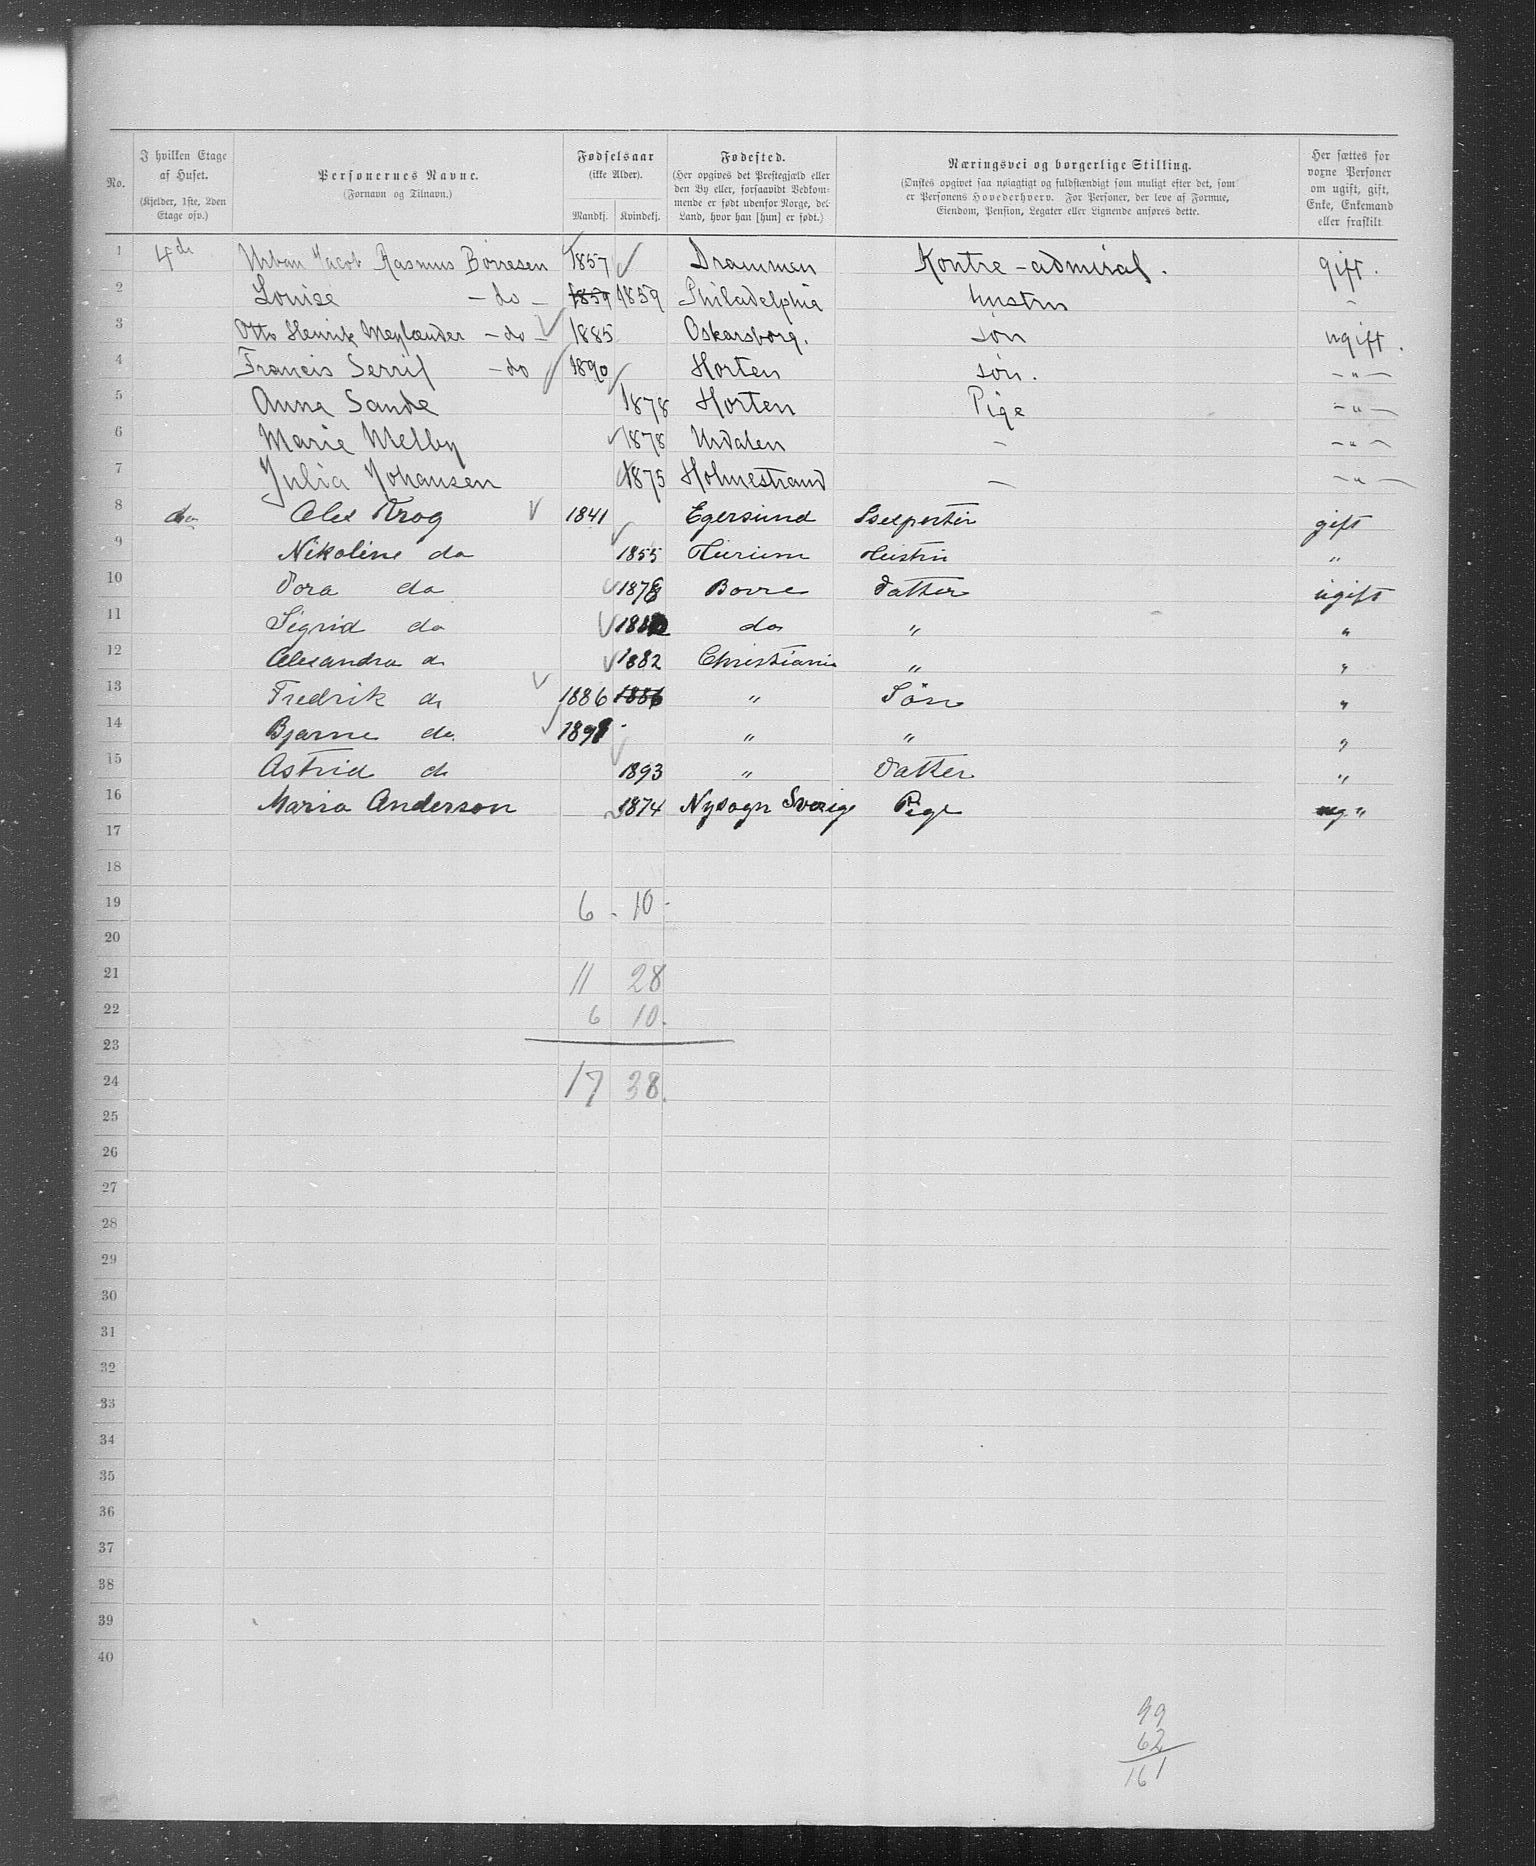 No.
I hvilken Etage af Huset. (Kjelder, 1ste, 2den Etage osv.)
Personernes Navne. (Fornavn og Tilnavn.)
Fødselsaar (ikke Alder). Mandkj. Kvindekj.
Fødested. (Her opgives det Prestegjæld eller den By eller, forsaavidt Vedkommende er født udenfor Norge, det Land, hvor han [hun] er født.)
Næringsvei og borgerlige Stilling. (Ønskes opgivet saa nøiagtigt og fuldstændigt som muligt efter det, som er Personens Hovederhverv. For Personer, der leve af Formue, Eiendom, Pension, Legater eller Lignende anføres dette.
Her sættes for voxne Personer om ugift, gift, Enke, Enkemand eller fraskilt
1 4de Urban Jacob Rasmus Børresen 1857 Drammen Kontre-admiral. gift.
2 Louise - do - 1859 1859 Philadelphia hustru -
3 Otto Henrik Meylænder - do - 1885 Oskarsborg. søn ugift.
4 Francis - do 1890 Horten søn. - " -
5 Anna Sande 1878 Horten Pige - " -
6 Marie Melby 1878 Urdalen - - " -
7 Julia Johansen 1875 Holmestrand - - " -
8 do Alex Krog 1841 Egersund gift
9 Nikoline do 1855 Hurum Hustru "
10 Dora do 1878 Borre Datter ugift
11 Sigrid do do " "
12 Alexandra do 1882 Christiania " "
13 Fredrik do 1886 1886 " Søn "
14 Bjarne do 1891 " " "
15 Astrid do 1893 " Datter "
16 Maria Anderson 1874 Nysogn Sverige Pige ug "
17
18
19 6 . 10 .
20
21 11 28
22 6 10.
23
24 17 38.
25
26
27
28
29
30
31
32
33
34
35
36
37
38
39
40
99
62
161